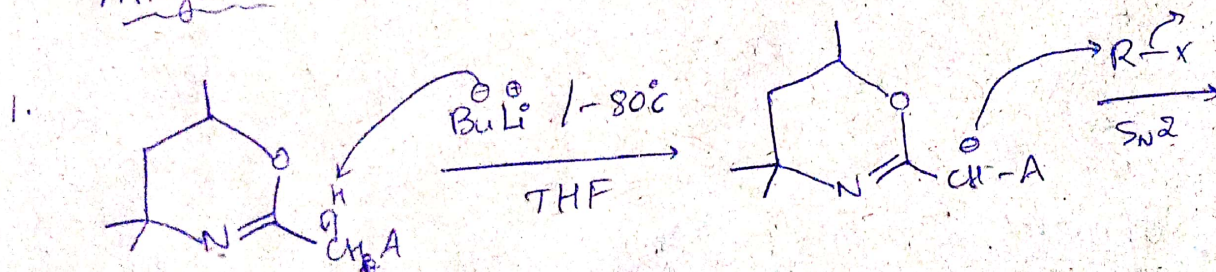 1.
O
N
H
CH A
⊖ ⊕
BuLi /-80°C
THF
O
N
⊖
CH-A
R-X
SN2